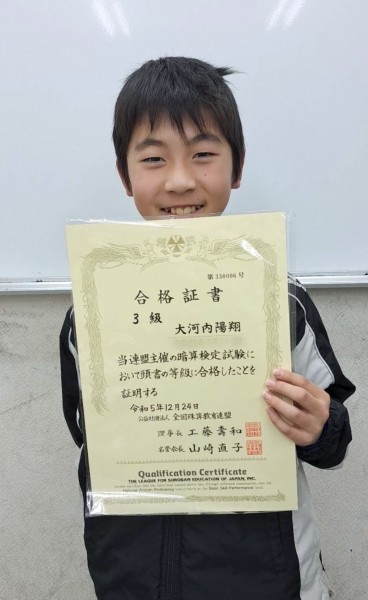 第338006号
合格証書
3級
大河内陽翔
当連盟主催の暗算検定試験に
おいて頭書の等級に合格したことを
証明する
令和5年12月24日
公益社団法人 全国珠算教育連盟
理事長 工藤壽和
名誉会長 山崎直子
Qualification Certificate
THE LEAGUE FOR SOROBAN EDUCATION OF JAPAN, INC.